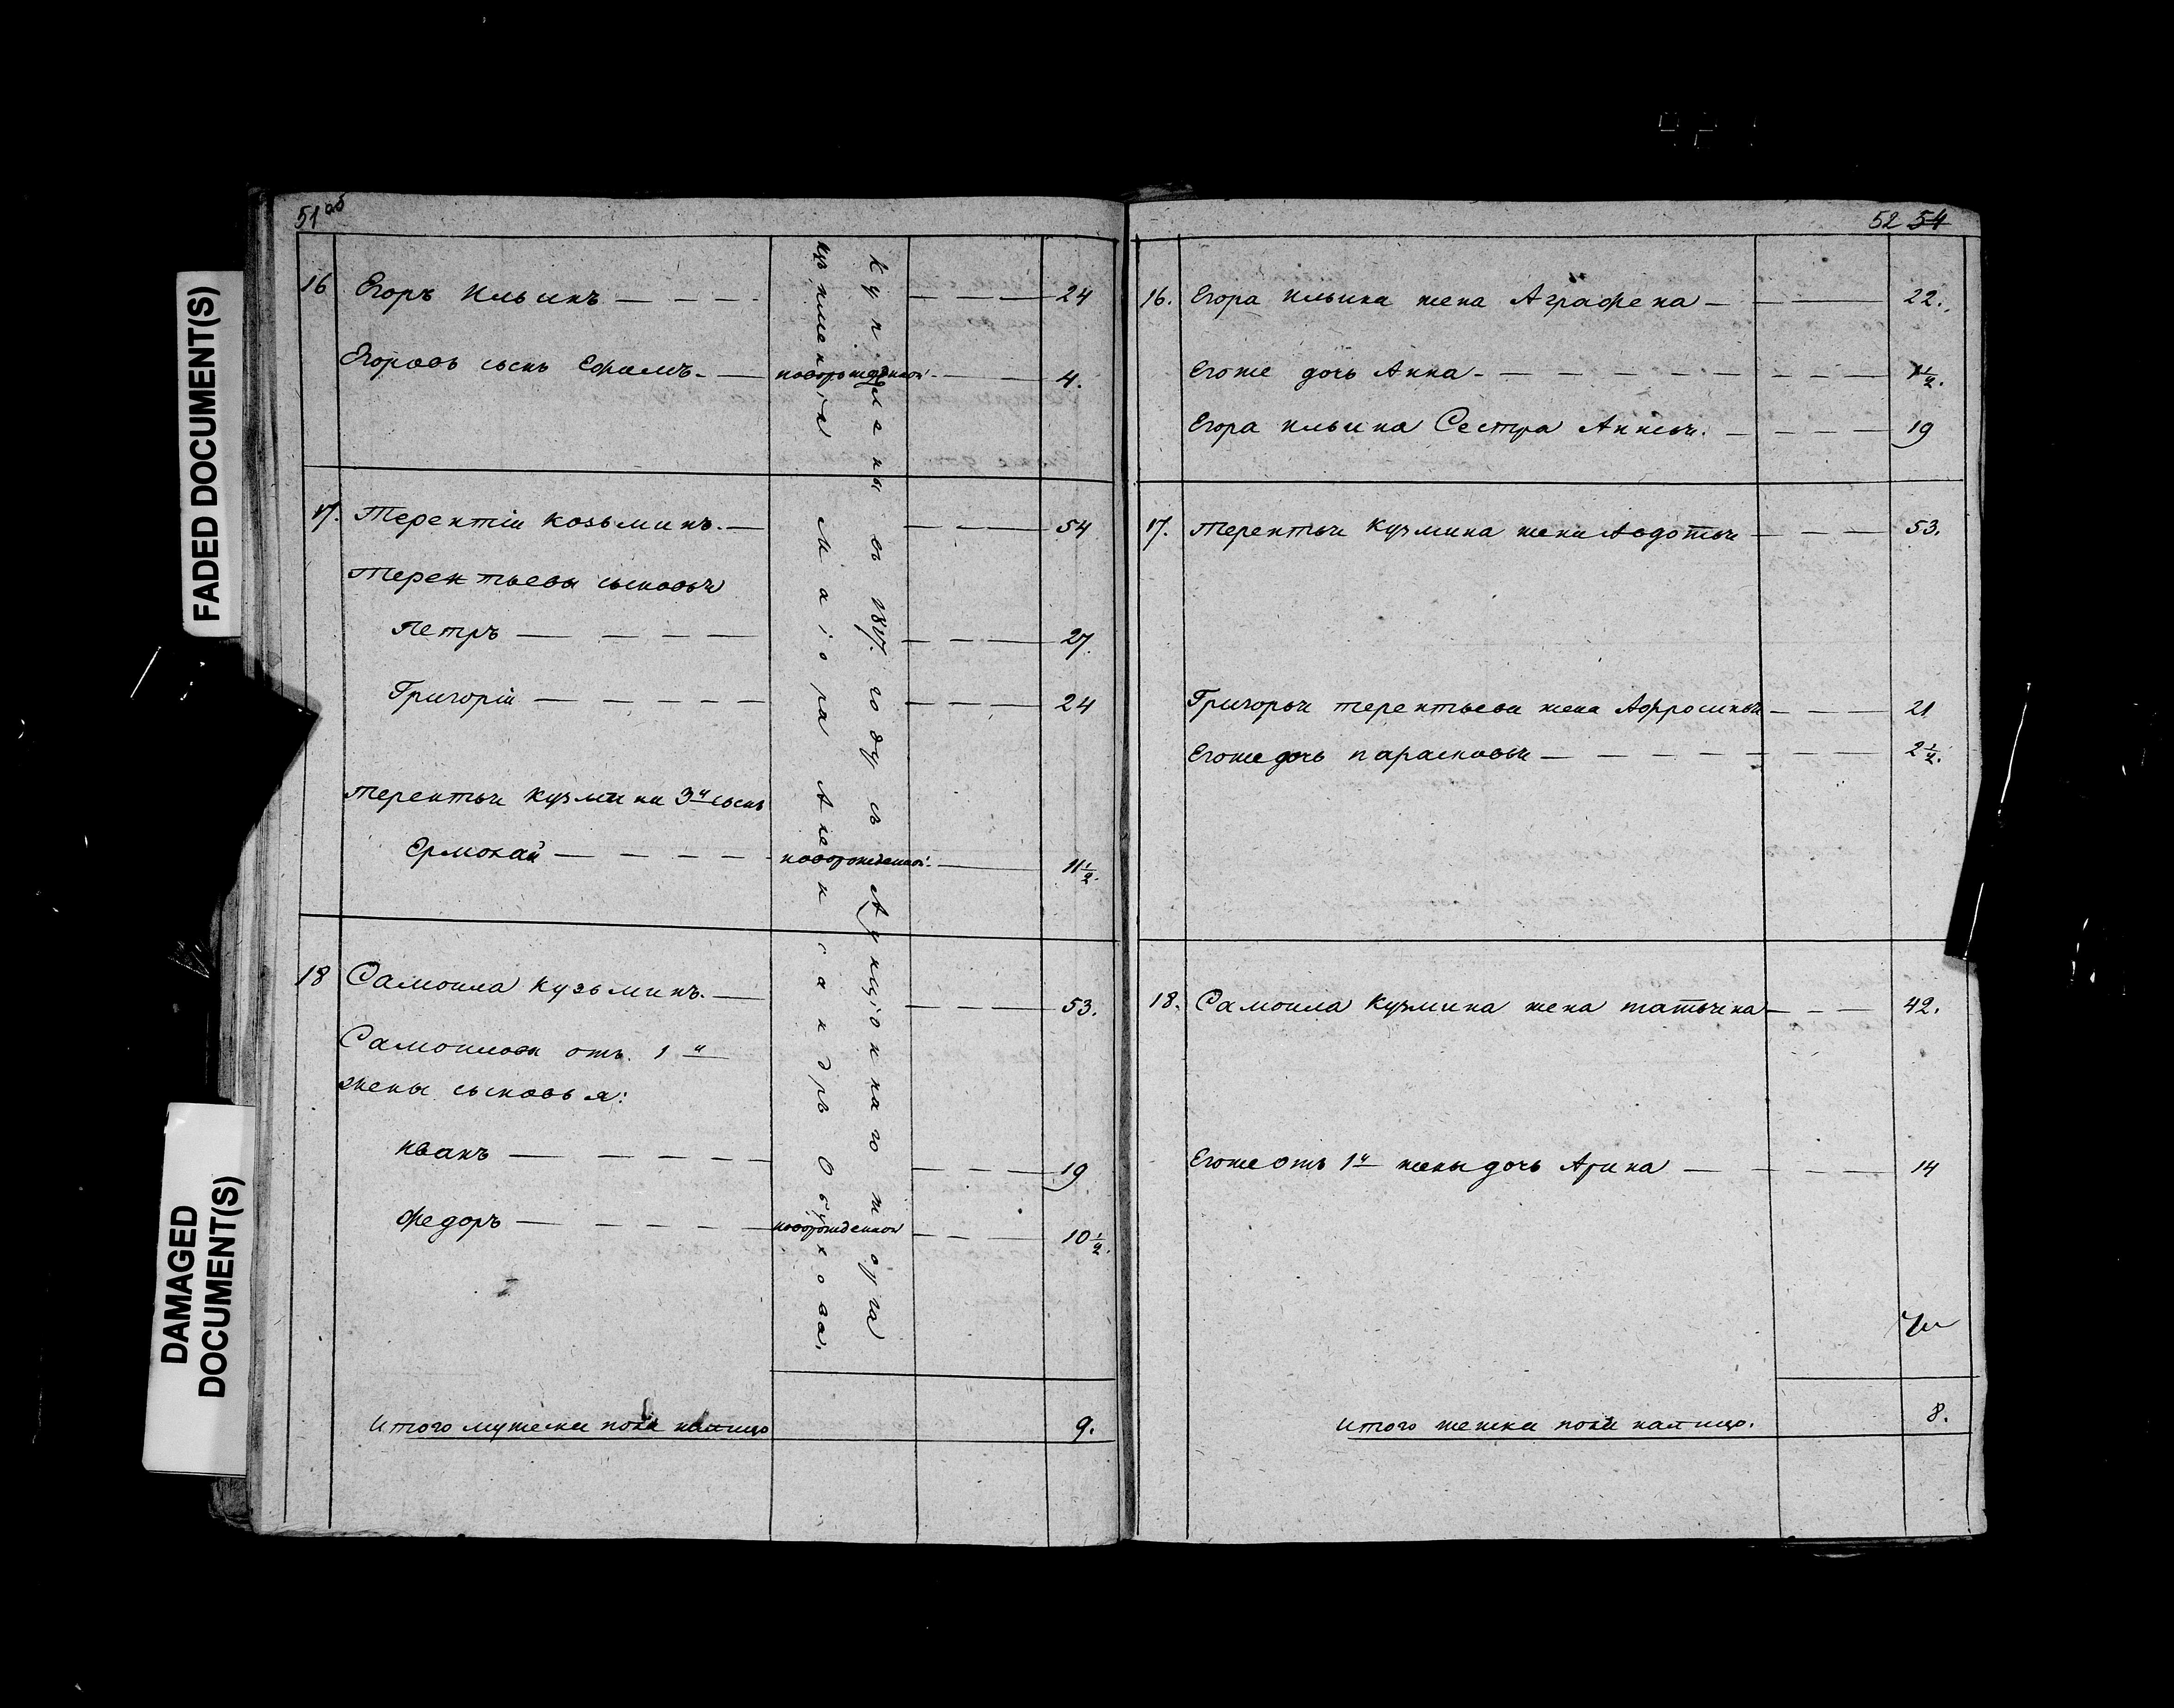 FADED DOCUMENT(S)
DAMAGED DOCUMENT(S)
51 об
16 Егоръ Ильинъ — — — 24
Егоровъ сынъ Ефимъ — новорожденной — 4.
17. Терентіи Козьминъ. — 54
Терентьевы сыновья
Петръ — — — 27.
Григоріи — — — 24
Терентья Кузмина 3й сынъ
Ермолай — — — новорожденной — 11 1/2.
18 Самоила Кузьминъ. — 53.
Самоиловы отъ 1й
жены сыновья:
Иванъ — — — 19
Федоръ — — — новорожденной — 10 1/2.
Итого мужеска пола налицо 9.
куплены въ 1817. году съ Аукціоннаго торга
изъ имения Маіора Александръ Обухова.
52 54
16. Егора Ильина жена Аграфена — 22.
Егоже дочь Анна — — — 1 1/2.
Егора Ильина Сестра Анисья. — 19
17. Терентья Кузмина жена Авдотья — 53.
Григорья Терентьева жена Афросинья — 21
Егоже дочь Парасковья — — — 2 1/2.
18. Самоила Кузмина жена Татьяна — 42.
Егоже отъ 1й жены дочь Арина — 14
Итого женска пола налицо. 8.